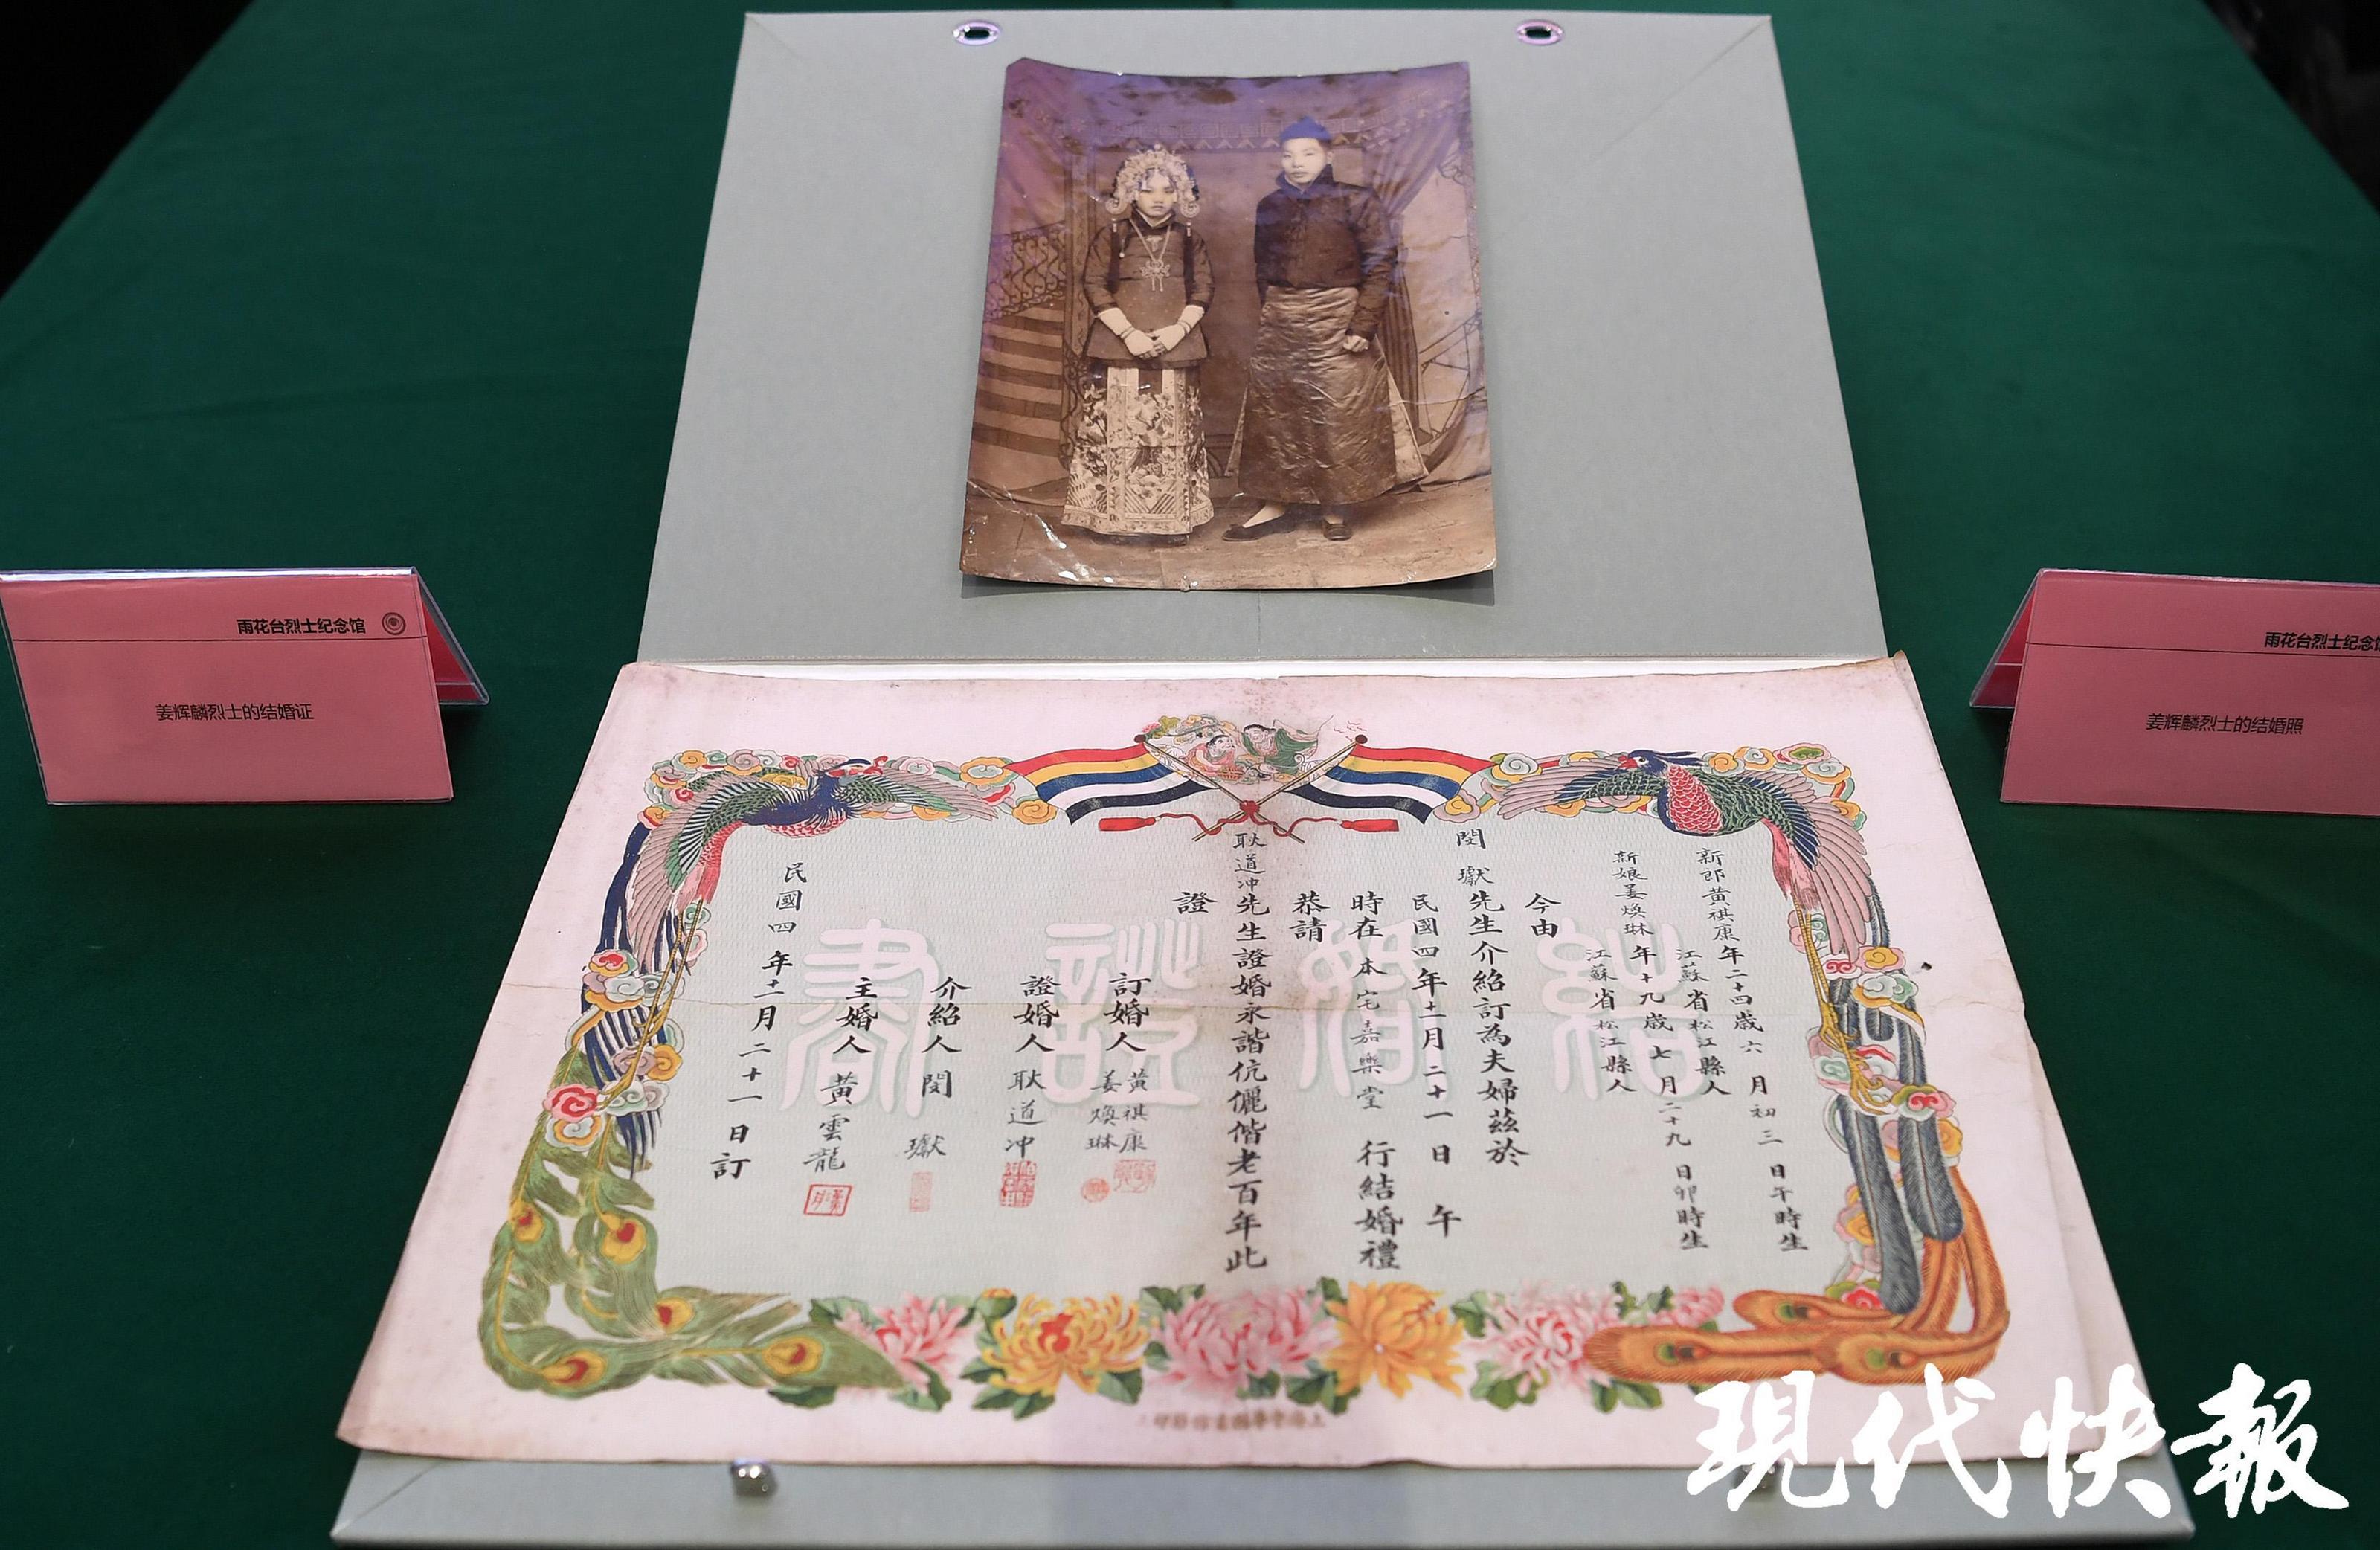 雨花台烈士纪念馆
姜辉麟烈士的结婚证
雨花台烈士纪念馆
姜辉麟烈士的结婚照
結婚證書
新郎黄祺康年二十四歲六月初三日午時生
江蘇省松江縣人
新娘姜煥琳年十九歲七月二十九日卯時生
江蘇省松江縣人
今由
閔瓛先生介紹訂為夫婦茲於
民國四年十二月二十一日午
時在本宅嘉樂堂行結婚禮
恭請
耿道冲先生證婚永諧伉儷偕老百年此
證
訂婚人黄祺康
姜煥琳
證婚人耿道冲
介紹人閔瓛
主婚人黄雲龍
民國四年十二月二十一日訂
現代快報